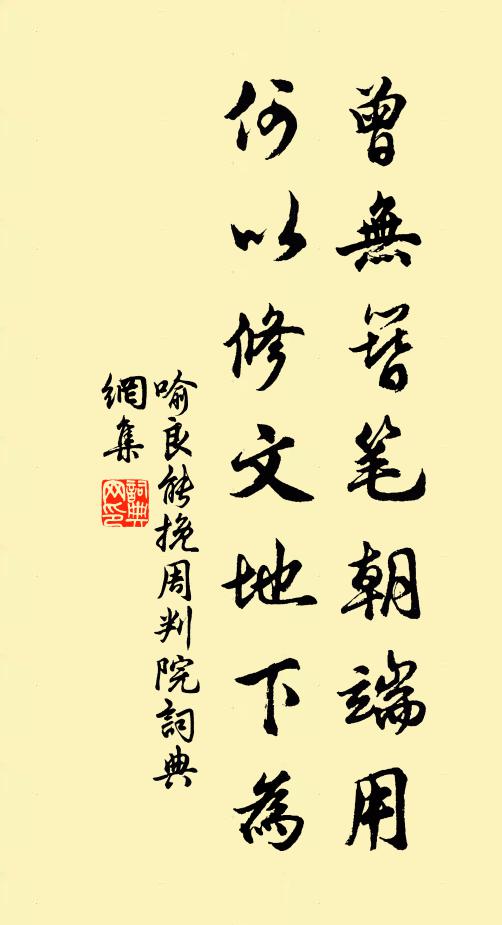 曾無簪笔朝端用
何以修文地下為
喻良能挽周判院詞典
網集
詞典
网印